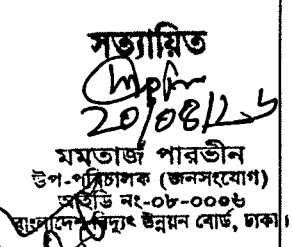 সত্যায়িত
20/08/26
মমতাজ পারভীন
উপ-পরিচালক (জনসংযোগ)
আইডি নং-০৮-০০০৬
বাংলাদেশ বিদ্যুৎ উন্নয়ন বোর্ড, ঢাকা।